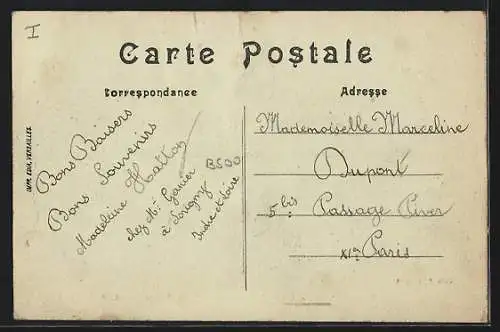 I
Carte Postale
Correspondance
Adresse
IMP. EDIA, VERSAILLES
Bons Baisers
Bons Souvenirs
Madeleine Hatton
chez Mr Garnier
à Sorigny
Indre et Loire
B500
Mademoiselle Marceline
Dupont
5 bis Passage Piver
XIe Paris